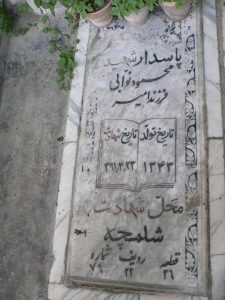 پاسدار شهید
محمود نوابی
فرزند امیر
تاریخ تولد تاریخ شهادت
۱۳۴۳ ۱۳۶۱.۴.۲۳
محل شهادت
شلمچه
قطعه ردیف شماره
۲۶ ۲۲ ۷۶